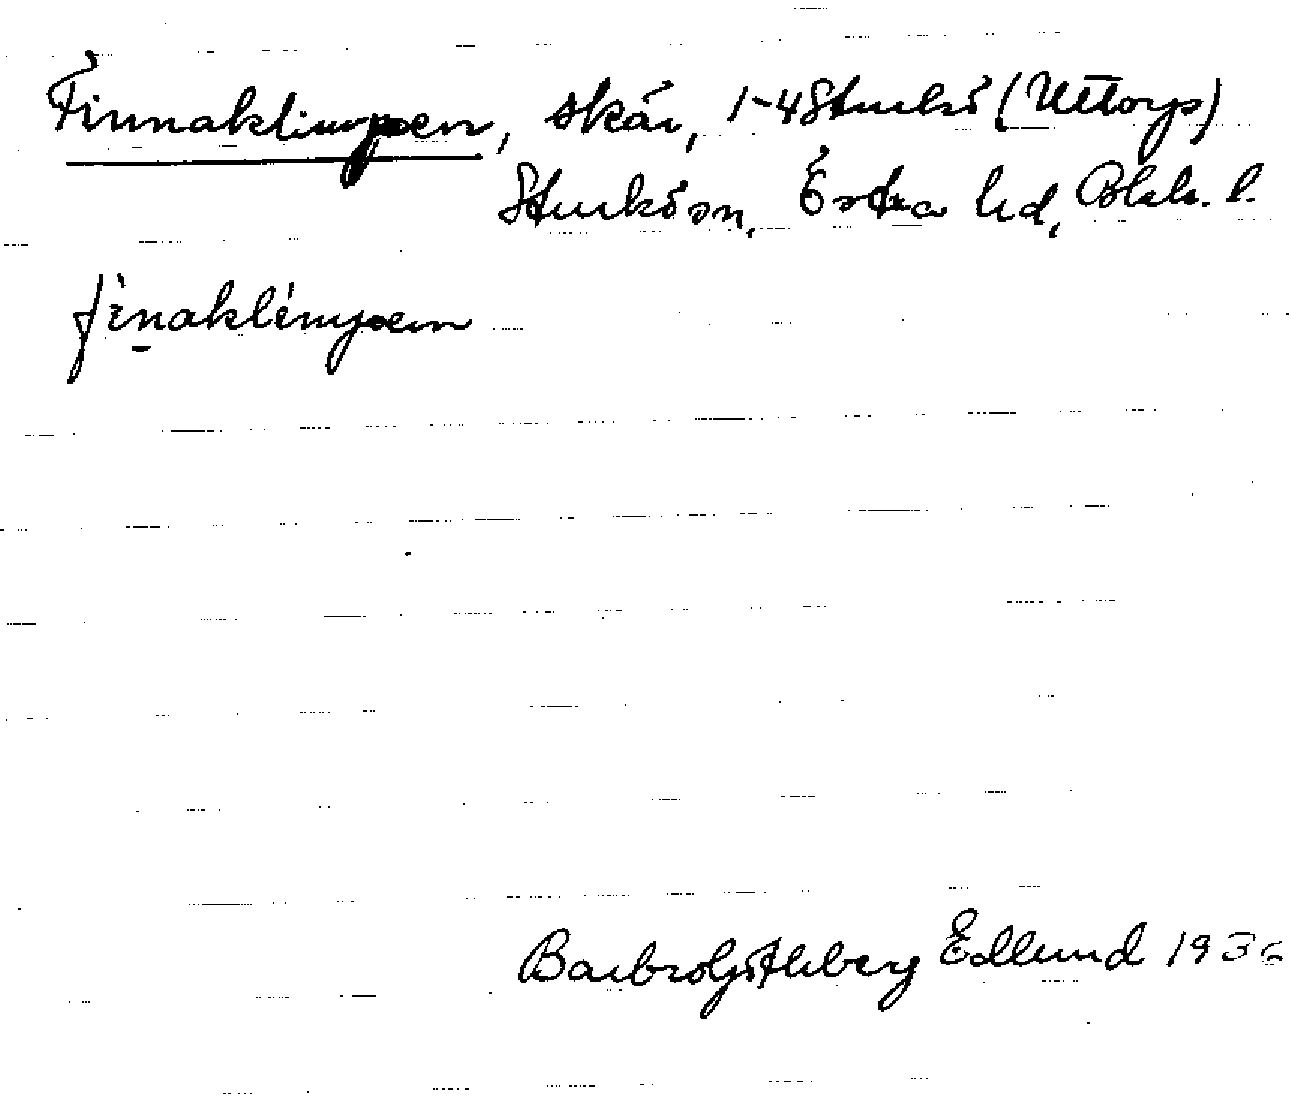 Finnaklimpen, skär, 1-4 Sturkö (Uttorp)
Sturkö sn, Östra hd, Blek. l.
finaklémpen
Barbro Götleberg Edlund 1936